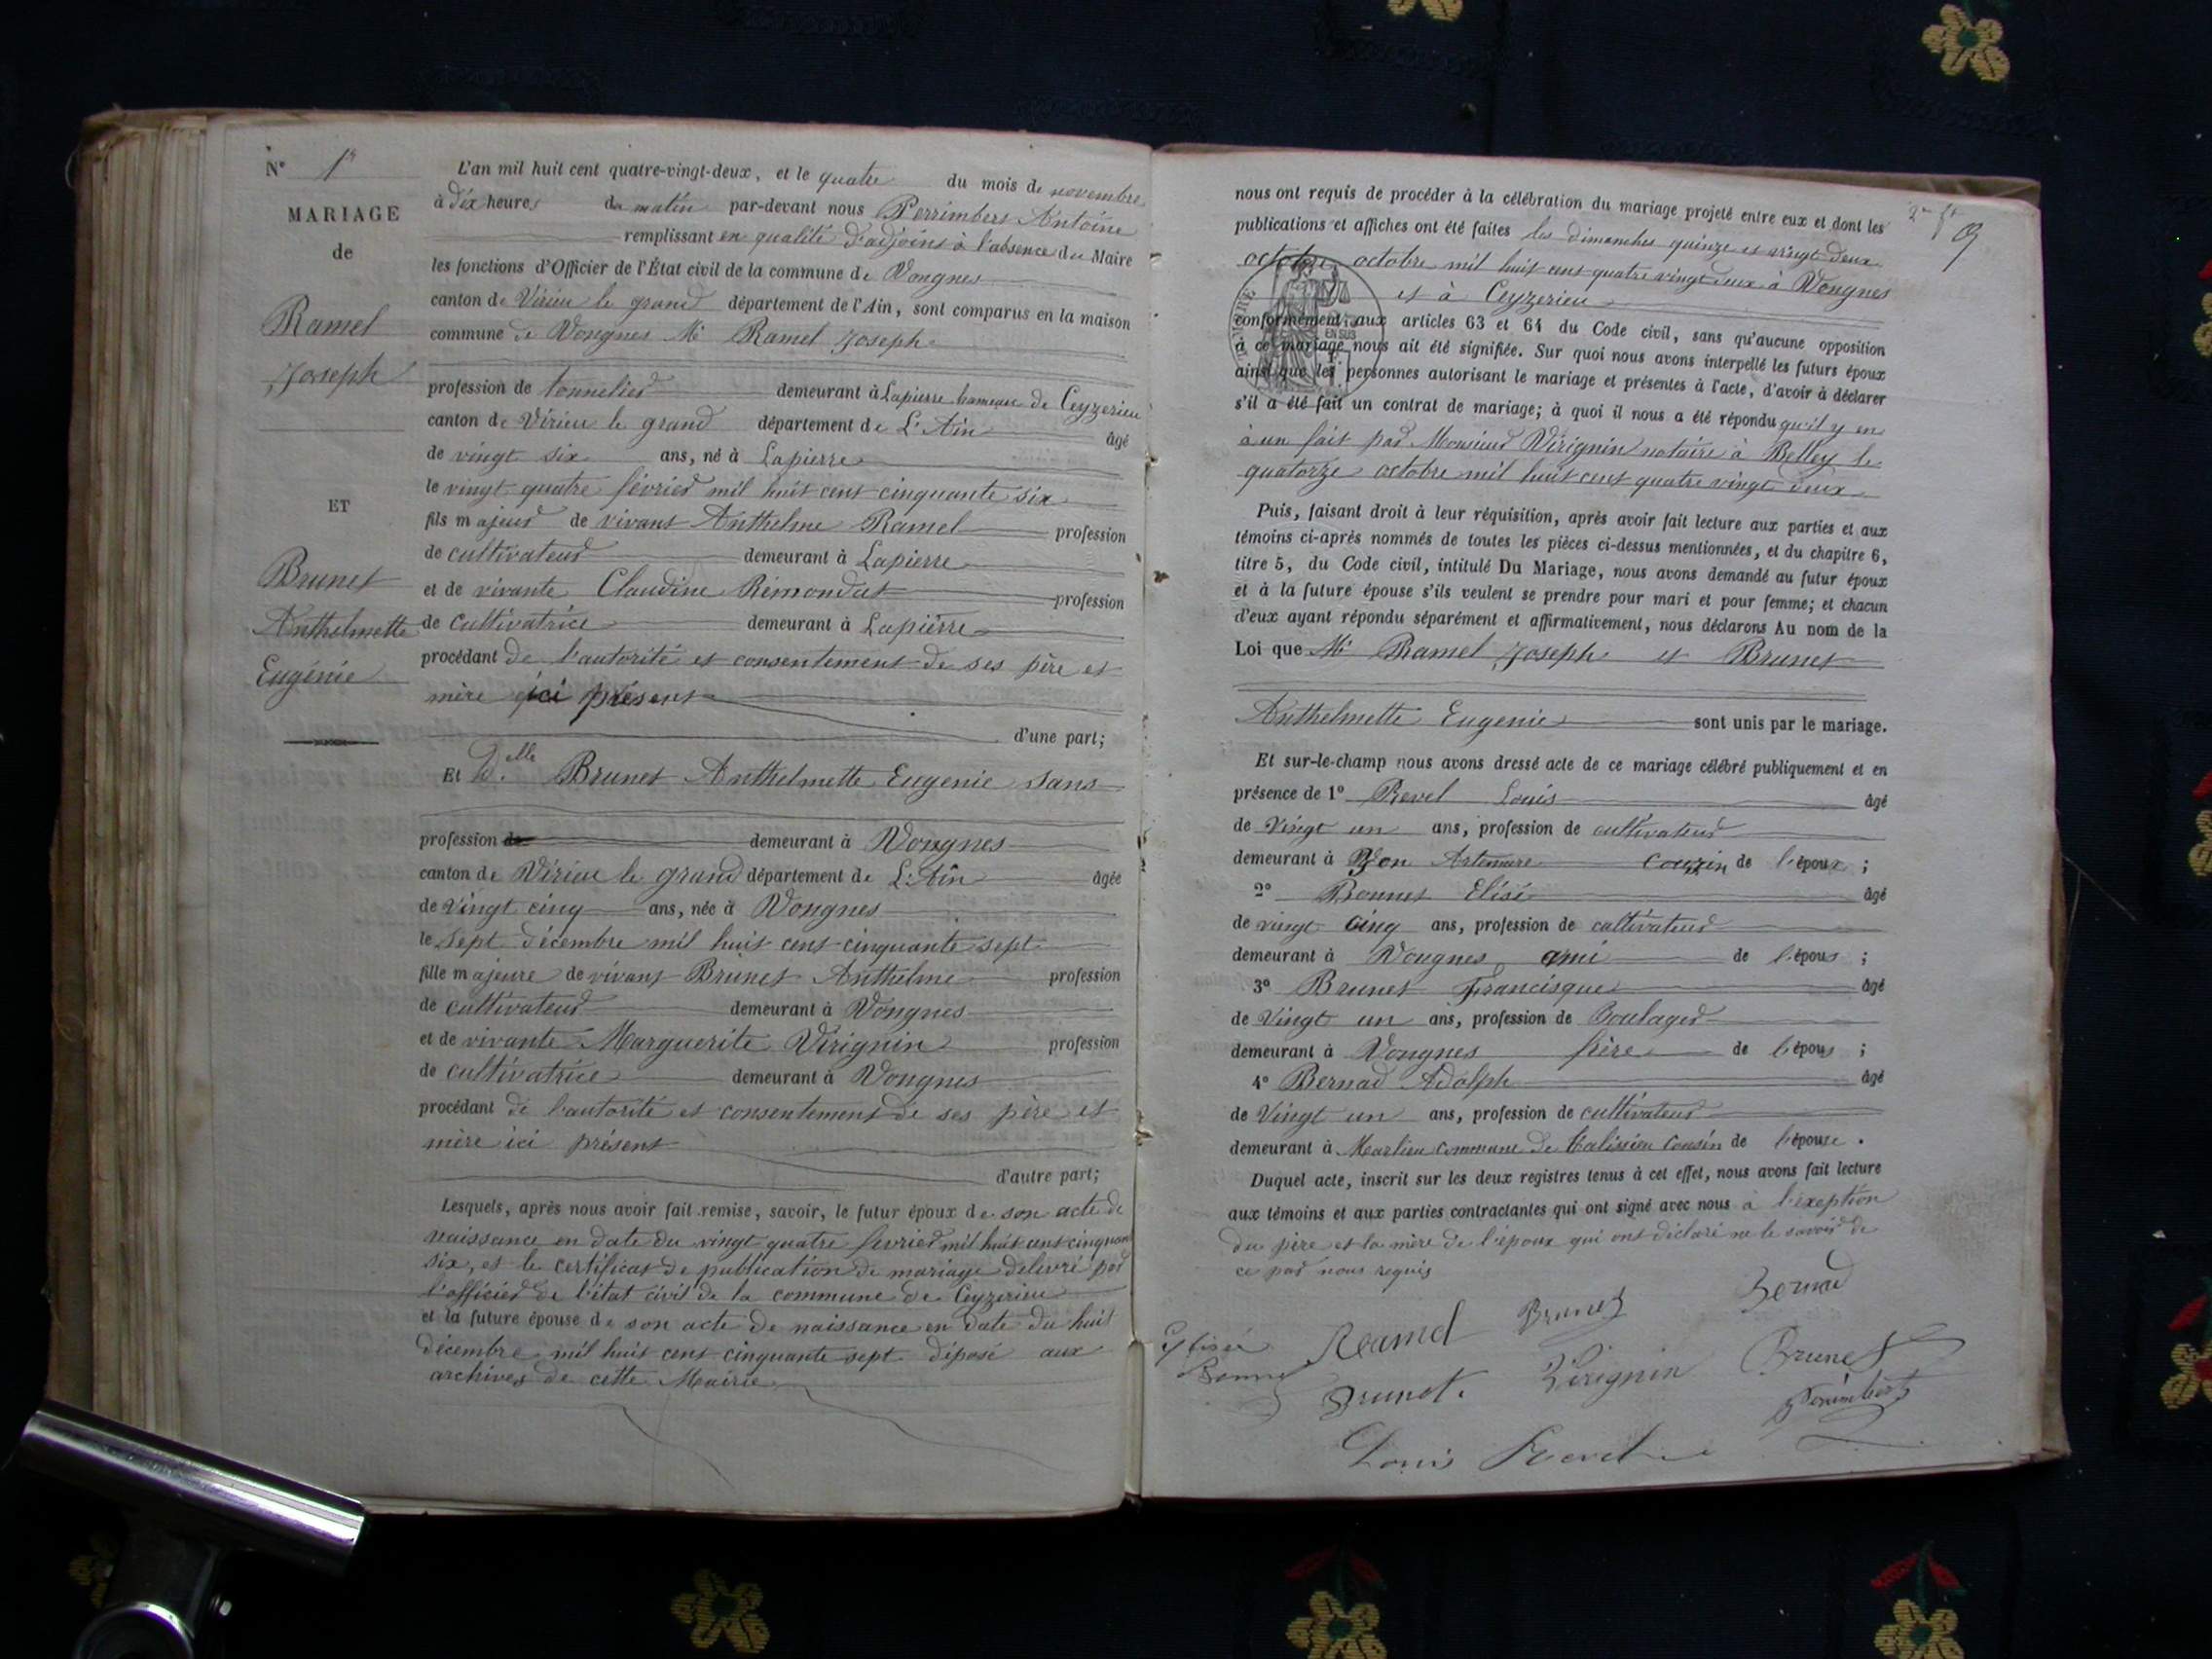 N° 1er
MARIAGE
de
Ramel
Joseph
ET
Brunet
Anthelmette
Eugénie
L'an mil huit cent quatre-vingt-deux, et le quatre du mois de novembre
à dix heures du matin par-devant nous Perrimbert Antoine
remplissant en qualité d'adjoint à l'absence du Maire
les fonctions d'Officier de l'État civil de la commune de Vongnes
canton de Virieu le grand département de l'Ain, sont comparus en la maison
commune de Vongnes Mr Ramel Joseph
profession de tonnelier demeurant à Lapierre hameau de Ceyzerieu
canton de Virieu le grand département de L'Ain âgé
de vingt six ans, né à Lapierre
le vingt quatre février mil huit cent cinquante six
fils majeur de vivant Anthelme Ramel profession
de cultivateur demeurant à Lapierre
et de vivante Claudine Rémondat profession
de cultivatrice demeurant à Lapierre
procédant de l'autorité et consentement de ses père et
mère ici présent
d'une part;
Et Delle Brunet Anthelmette Eugenie sans
profession de demeurant à Vongnes
canton de Virieu le grand département de L'Ain âgée
de vingt cinq ans, née à Vongnes
le sept décembre mil huit cent cinquante sept
fille majeure de vivant Brunet Anthelme profession
de cultivateur demeurant à Vongnes
et de vivante Marguerite Virignin profession
de cultivatrice demeurant à Vongnes
procédant de l'autorité et consentement de ses père et
mère ici présent
d'autre part;
Lesquels, après nous avoir fait remise, savoir, le futur époux de son acte de
naissance en date du vingt quatre février mil huit cent cinquant
six, et le certificat de publication de mariage delivré par
l'officier de l'état civil de la commune de Ceyzerieu
et la future épouse de son acte de naissance en date du huit
décembre mil huit cent cinquante sept déposé aux
archives de cette Mairie
nous ont requis de procéder à la célébration du mariage projeté entre eux et dont les
publications et affiches ont été faites les dimanches quinze et vingt deux
octobre octobre mil huit cent quatre vingt deux à Vongnes
et à Ceyzerieu
conformément aux articles 63 et 64 du Code civil, sans qu'aucune opposition
à ce mariage nous ait été signifiée. Sur quoi nous avons interpellé les futurs époux
ainsi que les personnes autorisant le mariage et présentes à l'acte, d'avoir à déclarer
s'il a été fait un contrat de mariage; à quoi il nous a été répondu qu'il y en
à un fait par Monsieur Virignin notaire à Belley le
quatorze octobre mil huit cent quatre vingt deux
Puis, faisant droit à leur réquisition, après avoir fait lecture aux parties et aux
témoins ci-après nommés de toutes les pièces ci-dessus mentionnées, et du chapitre 6,
titre 5, du Code civil, intitulé Du Mariage, nous avons demandé au futur époux
et à la future épouse s'ils veulent se prendre pour mari et pour femme; et chacun
d'eux ayant répondu séparément et affirmativement, nous déclarons Au nom de la
Loi que Mr Ramel Joseph et Brunet
Anthelmette Eugenie sont unis par le mariage.
Et sur-le-champ nous avons dressé acte de ce mariage célébré publiquement et en
présence de 1° Revel Louis âgé
de Vingt un ans, profession de cultivateur
demeurant à Yon Artemare couzin de l'époux ;
2° Bonnet Elisé âgé
de vingt cinq ans, profession de cultivateur
demeurant à Vongnes ami de l'épous ;
3° Brunet Francisque âgé
de Vingt un ans, profession de Boulager
demeurant à Vongnes frère de l'épous ;
4° Bernad Adolph âgé
de Vingt un ans, profession de cultivateur
demeurant à Marlieu commune de Talissieu cousin de l'épouse.
Duquel acte, inscrit sur les deux registres tenus à cet effet, nous avons fait lecture
aux témoins et aux parties contractantes qui ont signé avec nous à l'exeption
du père et la mère de l'époux qui ont déclaré ne le savoir de
ce par nous requis
Bernad
Brunet
Ramel
Bonnet
Brunet
Virignin
Brunet
Perrimbert
Louis Revel